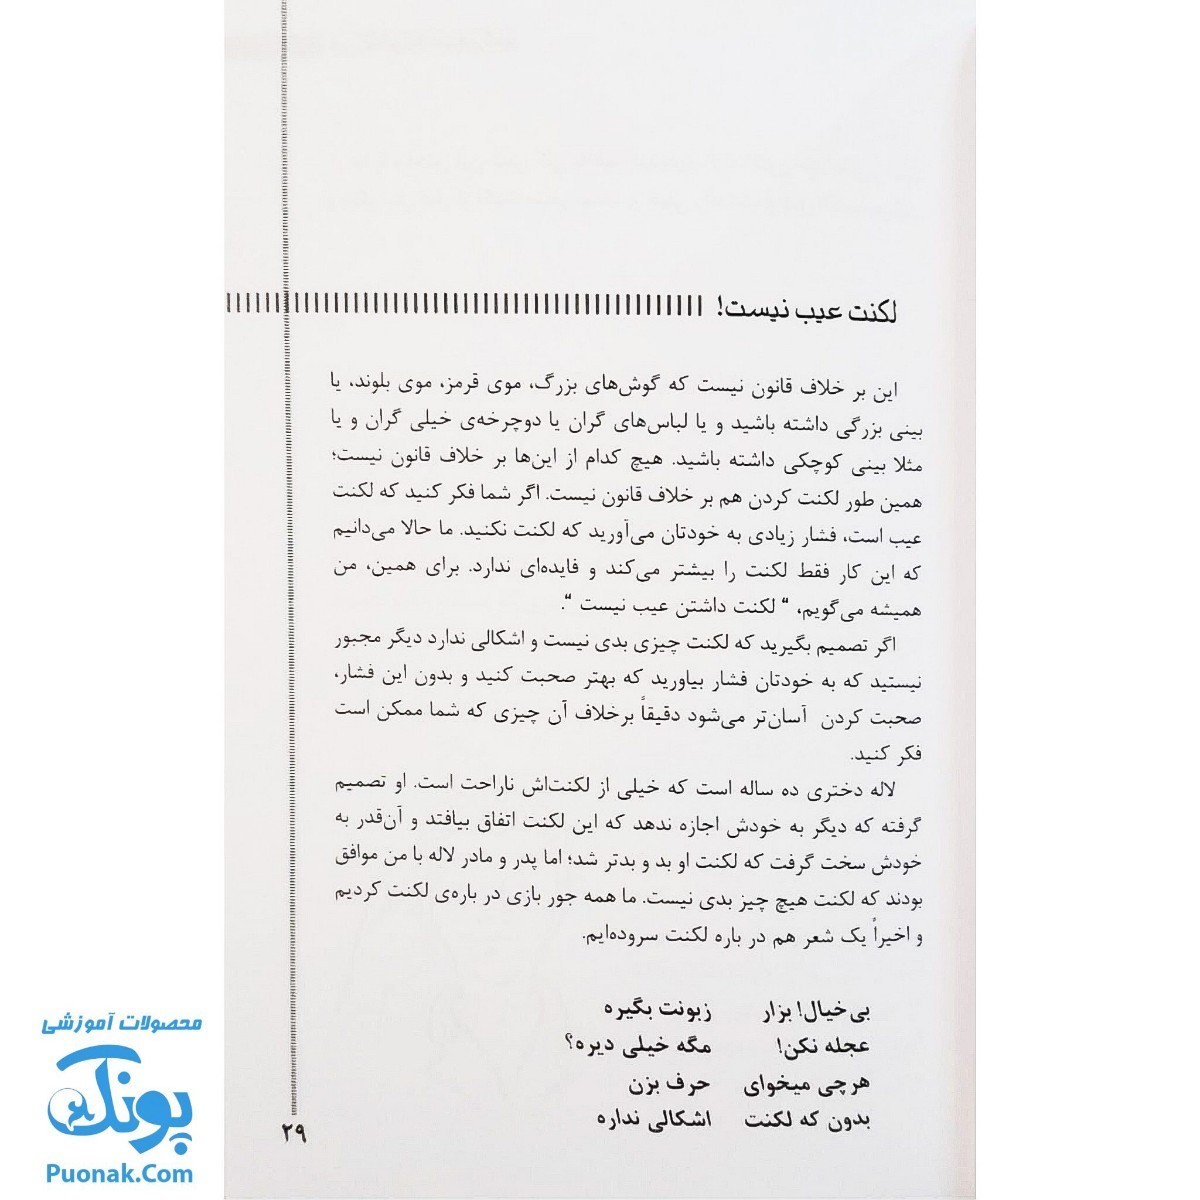 لکنت عیب نیست!
این بر خلاف قانون نیست که گوش‌های بزرگ، موی قرمز، موی بلوند، یا
بینی بزرگی داشته باشید و یا لباس‌های گران یا دوچرخه‌ی خیلی گران و یا
مثلا بینی کوچکی داشته باشید. هیچ کدام از این‌ها بر خلاف قانون نیست؛
همین طور لکنت کردن هم بر خلاف قانون نیست. اگر شما فکر کنید که لکنت
عیب است، فشار زیادی به خودتان می‌آورید که لکنت نکنید. ما حالا می‌دانیم
که این کار فقط لکنت را بیشتر می‌کند و فایده‌ای ندارد. برای همین، من
همیشه می‌گویم، “ لکنت داشتن عیب نیست “.
اگر تصمیم بگیرید که لکنت چیزی بدی نیست و اشکالی ندارد دیگر مجبور
نیستید که به خودتان فشار بیاورید که بهتر صحبت کنید و بدون این فشار،
صحبت کردن آسان‌تر می‌شود دقیقاً برخلاف آن چیزی که شما ممکن است
فکر کنید.
لاله دختری ده ساله است که خیلی از لکنت‌اش ناراحت است. او تصمیم
گرفته که دیگر به خودش اجازه ندهد که این لکنت اتفاق بیافتد و آن‌قدر به
خودش سخت گرفت که لکنت او بد و بدتر شد؛ اما پدر و مادر لاله با من موافق
بودند که لکنت هیچ چیز بدی نیست. ما همه جور بازی در باره‌ی لکنت کردیم
و اخیراً یک شعر هم در باره لکنت سروده‌ایم.
بی‌خیال! بزار زبونت بگیره
عجله نکن! مگه خیلی دیره؟
هرچی میخوای حرف بزن
بدون که لکنت اشکالی نداره
۲۹
محصولات آموزشی
پونک
Puonak.Com